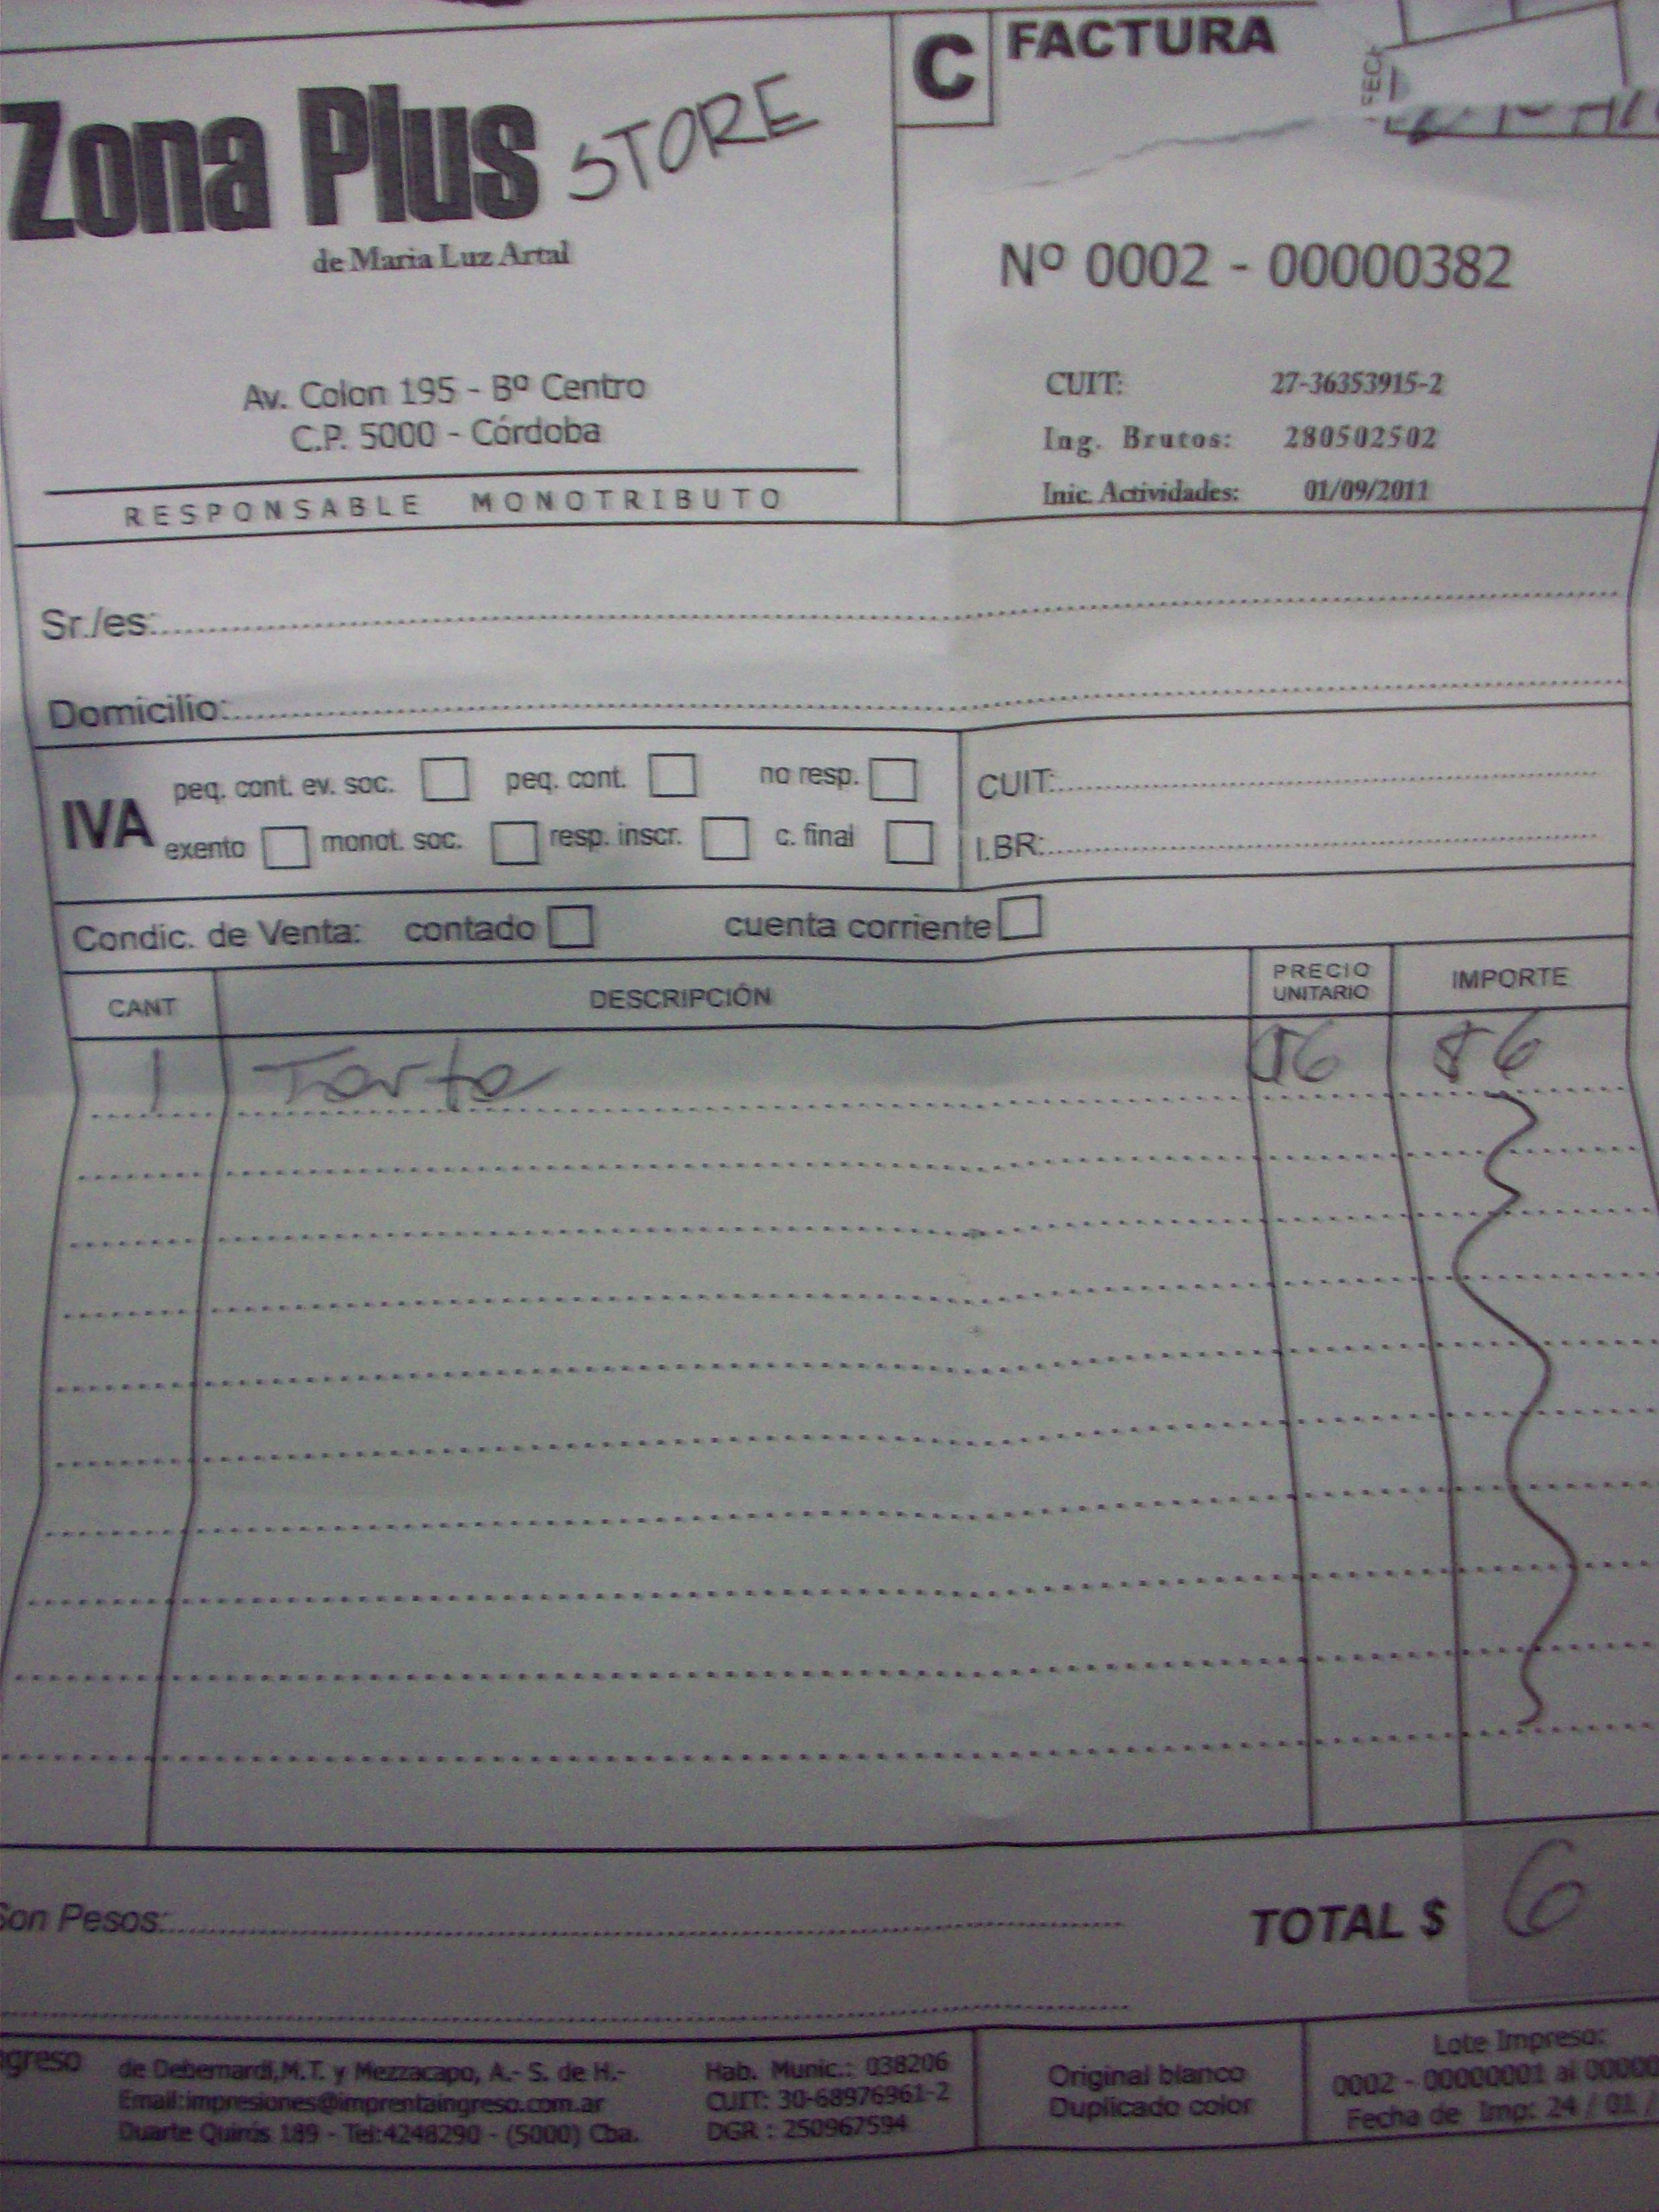 C FACTURA
FECH
Zona Plus STORE
de Maria Luz Artal
Nº 0002 - 00000382
Av. Colon 195 - Bº Centro
C.P. 5000 - Córdoba
CUIT: 27-36353915-2
Ing. Brutos: 280502502
Inic. Actividades: 01/09/2011
RESPONSABLE MONOTRIBUTO
Sr./es:
Domicilio:
IVA
peq. cont. ev. soc. peq. cont. no resp.
exento monot. soc. resp. inscr. c. final
CUIT:
I.BR:
Condic. de Venta: contado cuenta corriente
CANT DESCRIPCIÓN PRECIO UNITARIO IMPORTE
1 Tarta $6 $6
Son Pesos:
TOTAL $ 6
ngreso
de Debernardi,M.T. y Mezzacapo, A.- S. de H.-
Email:impresiones@imprentaingreso.com.ar
Duarte Quirós 189 - Tel:4248290 - (5000) Cba.
Hab. Munic.: 038206
CUIT: 30-68976961-2
DGR : 250967594
Original blanco
Duplicado color
Lote Impreso:
0002 - 00000001 al 00000
Fecha de Imp: 24 / 01 /